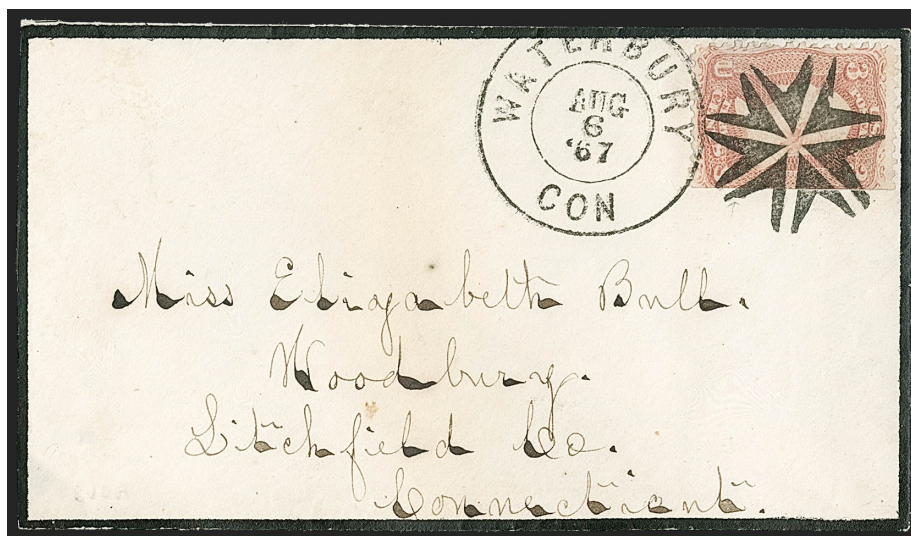 WATERBURY
AUG
6
'67
CON
3
U
Miss Elizabeth Bull.
Woodbury.
Litchfield Co.
Connecticut.